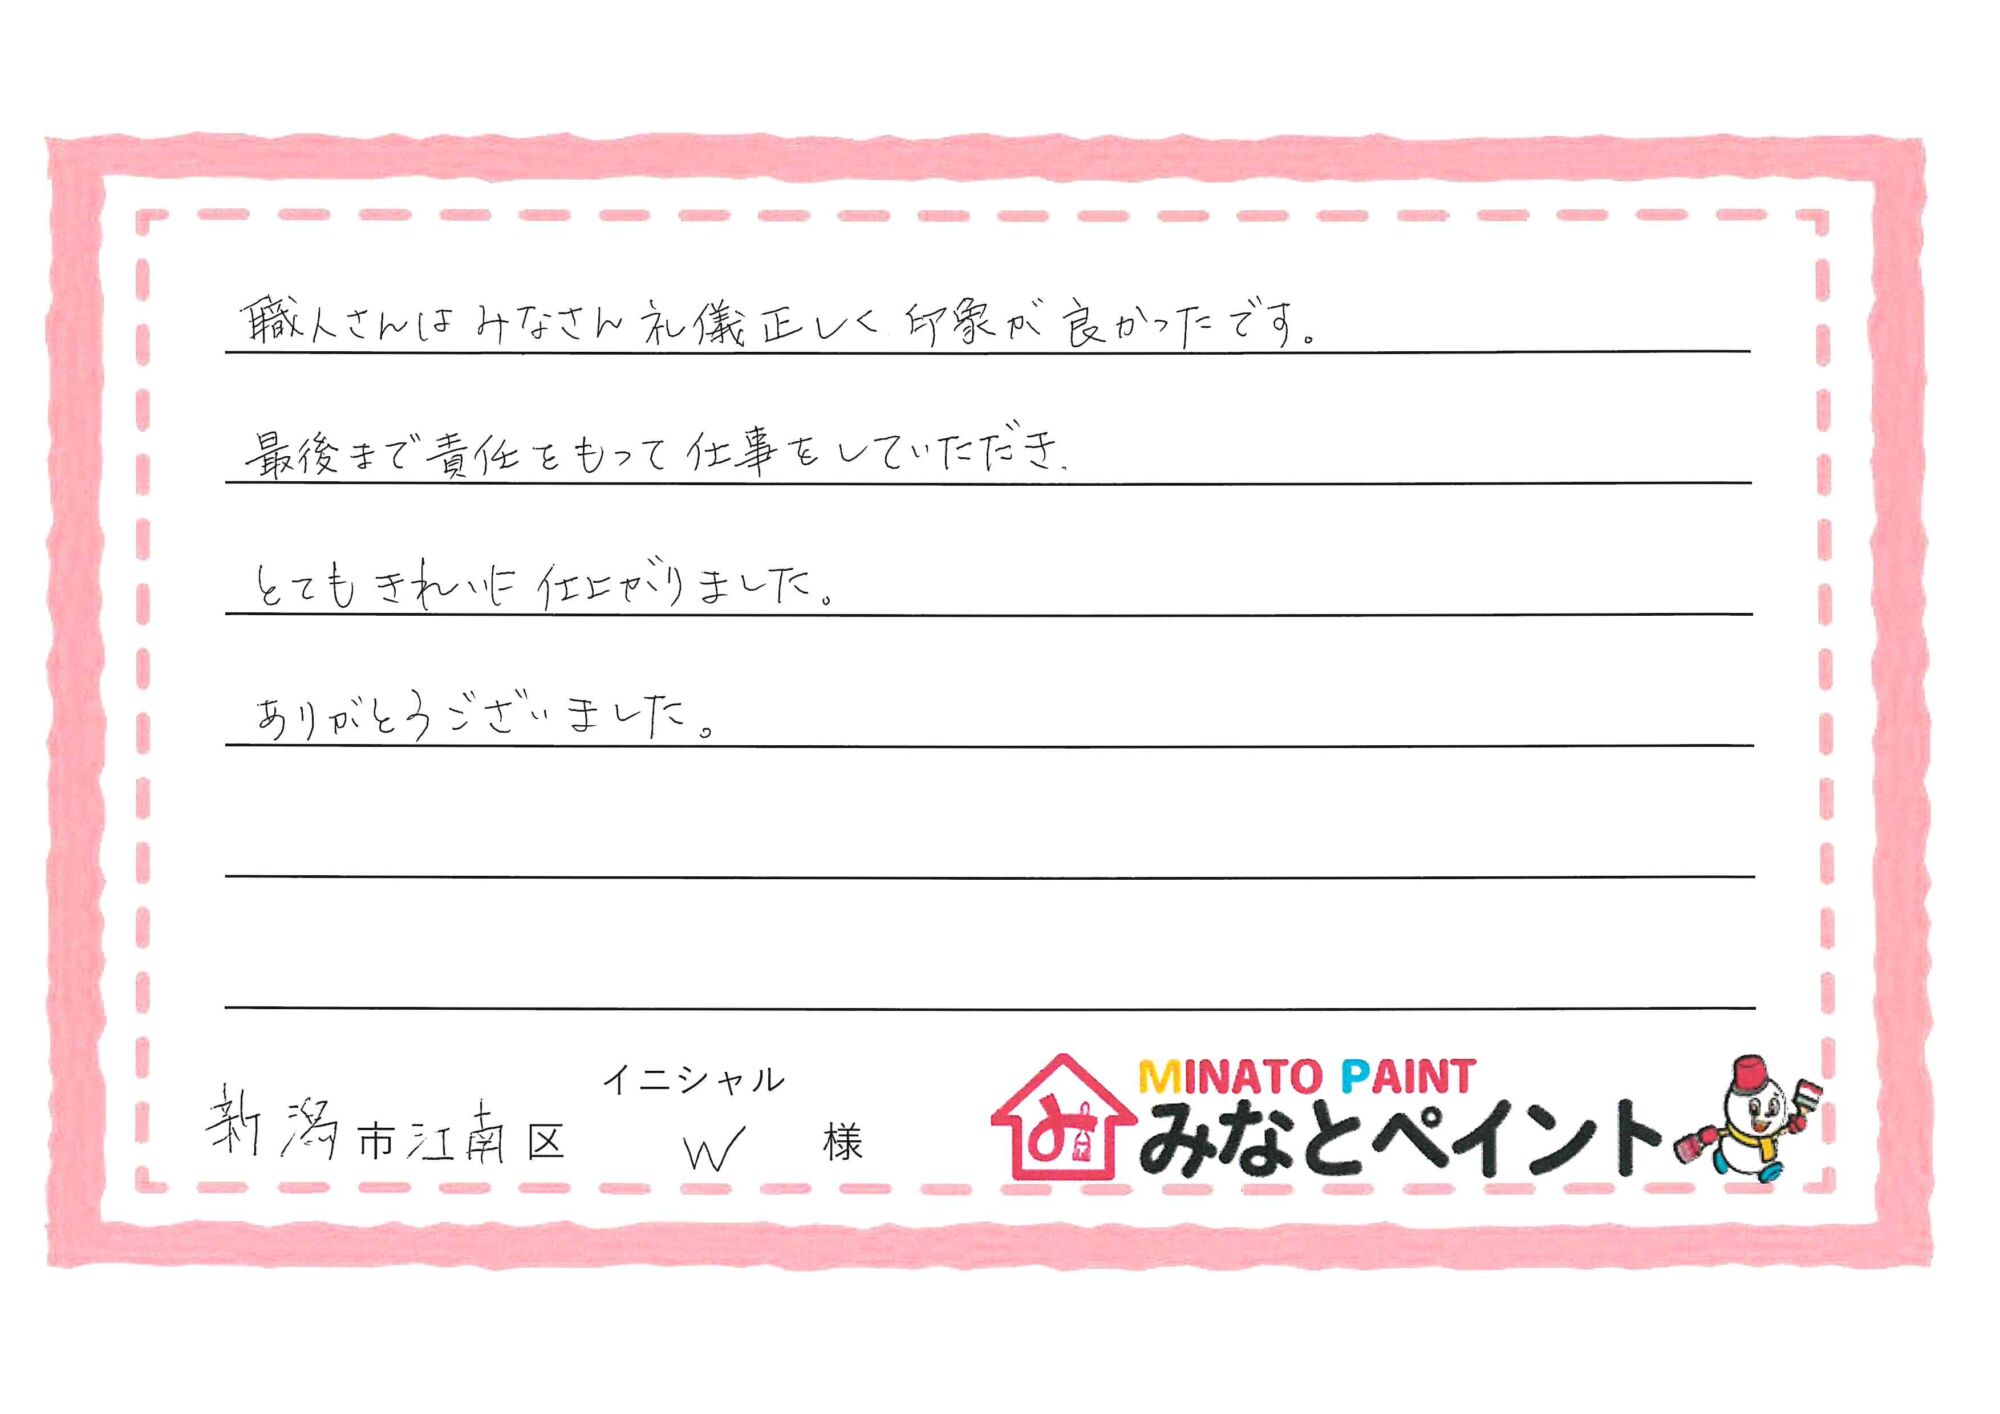 職人さんは みなさん 礼儀正しく 印象が 良かったです。
最後まで責任をもって 仕事をしていただき.
とても きれいに 仕上がりました。
ありがとうございました。
イニシャル
新潟市江南区 W 様
MINATO PAINT
みなとペイント
み